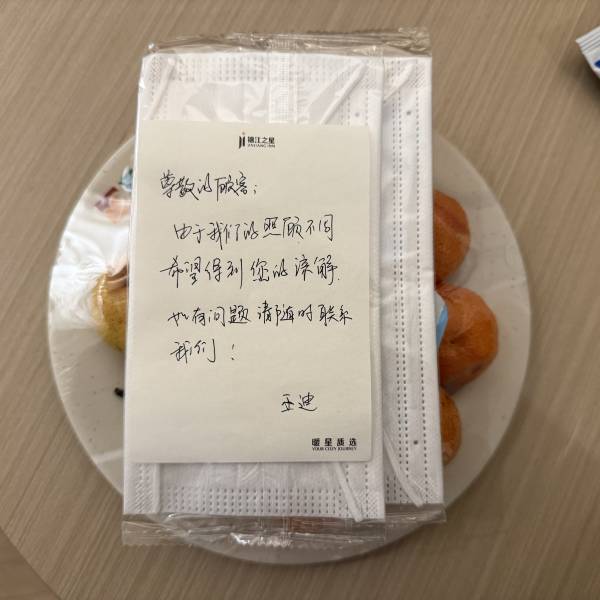 锦江之星
JINJIANG INN
尊敬的顾客：
由于我们的照顾不周
希望得到您的谅解.
如有问题请随时联系
我们！
王迪
暖星质选
YOUR COZY JOURNEY